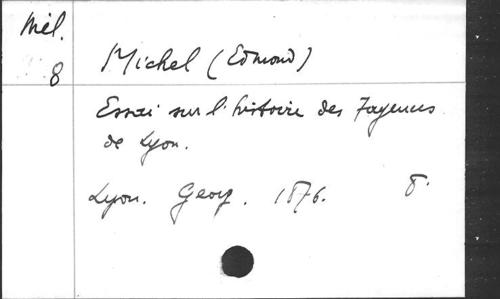 Mél.
8
Michel (Edmond)
Essai sur l'histoire des Fayences
de Lyon.
Lyon. Georg. 1876. 8°.